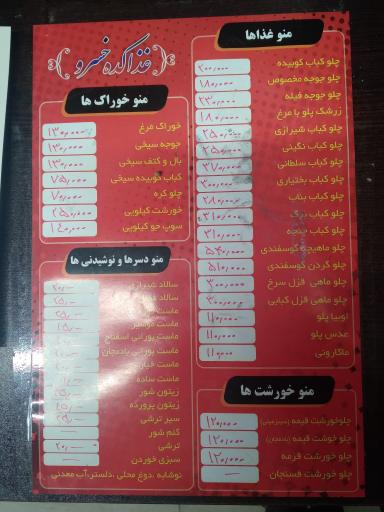 غذاکده خسرو
منو غذاها
چلو کباب کوبیده ۲۰۰,۰۰۰
چلو جوجه مخصوص ۱۸۰,۰۰۰
چلو جوجه فیله ۲۳۰,۰۰۰
زرشک پلو با مرغ ۱۸۰,۰۰۰
چلو کباب شیرازی ۲۵۰,۰۰۰
چلو کباب نگینی ۲۵۰,۰۰۰
چلو کباب سلطانی ۳۷۰,۰۰۰
چلو کباب بختیاری ۳۰۰,۰۰۰
چلو کباب بناب ۲۸۰,۰۰۰
چلو کباب برگ ۳۱۰,۰۰۰
چلو کباب چنجه ۳۱۰,۰۰۰
چلو ماهیچه گوسفندی ۵۴۰,۰۰۰
چلو گردن گوسفندی ۵۱۰,۰۰۰
چلو ماهی قزل سرخ ۳۰۰,۰۰۰
چلو ماهی قزل کبابی ۳۰۰,۰۰۰
لوبیا پلو ۱۱۰,۰۰۰
عدس پلو ۱۱۰,۰۰۰
ماکارونی ۱۱۰,۰۰۰
منو خورشت ها
چلوخورشت قیمه ۱۲۰,۰۰۰
چلو خوشت قیمه ۱۲۰,۰۰۰
چلو خورشت قرمه ۱۲۰,۰۰۰
چلو خورشت فسنجان —
منو خوراک ها
خوراک مرغ ۱۳۰,۰۰۰
جوجه سیخی ۱۳۰,۰۰۰
بال و کتف سیخی ۱۳۰,۰۰۰
کباب کوبیده سیخی ۷۵,۰۰۰
چلو کره ۷۰,۰۰۰
خورشت کیلویی ۲۵۰,۰۰۰
سوپ جو کیلویی ۱۲۰,۰۰۰
منو دسرها و نوشیدنی ها
سالاد شیرازی
سالاد
ماست
ماست موسیر
ماست بورانی اسفناج
ماست بورانی بادمجان
ماست خیار
ماست ساده
زیتون شور
زیتون پرورده
سیر ترشی
کلم شور
ترشی
سبزی خوردن
نوشابه ،دوغ محلی ،دلستر،آب معدنی